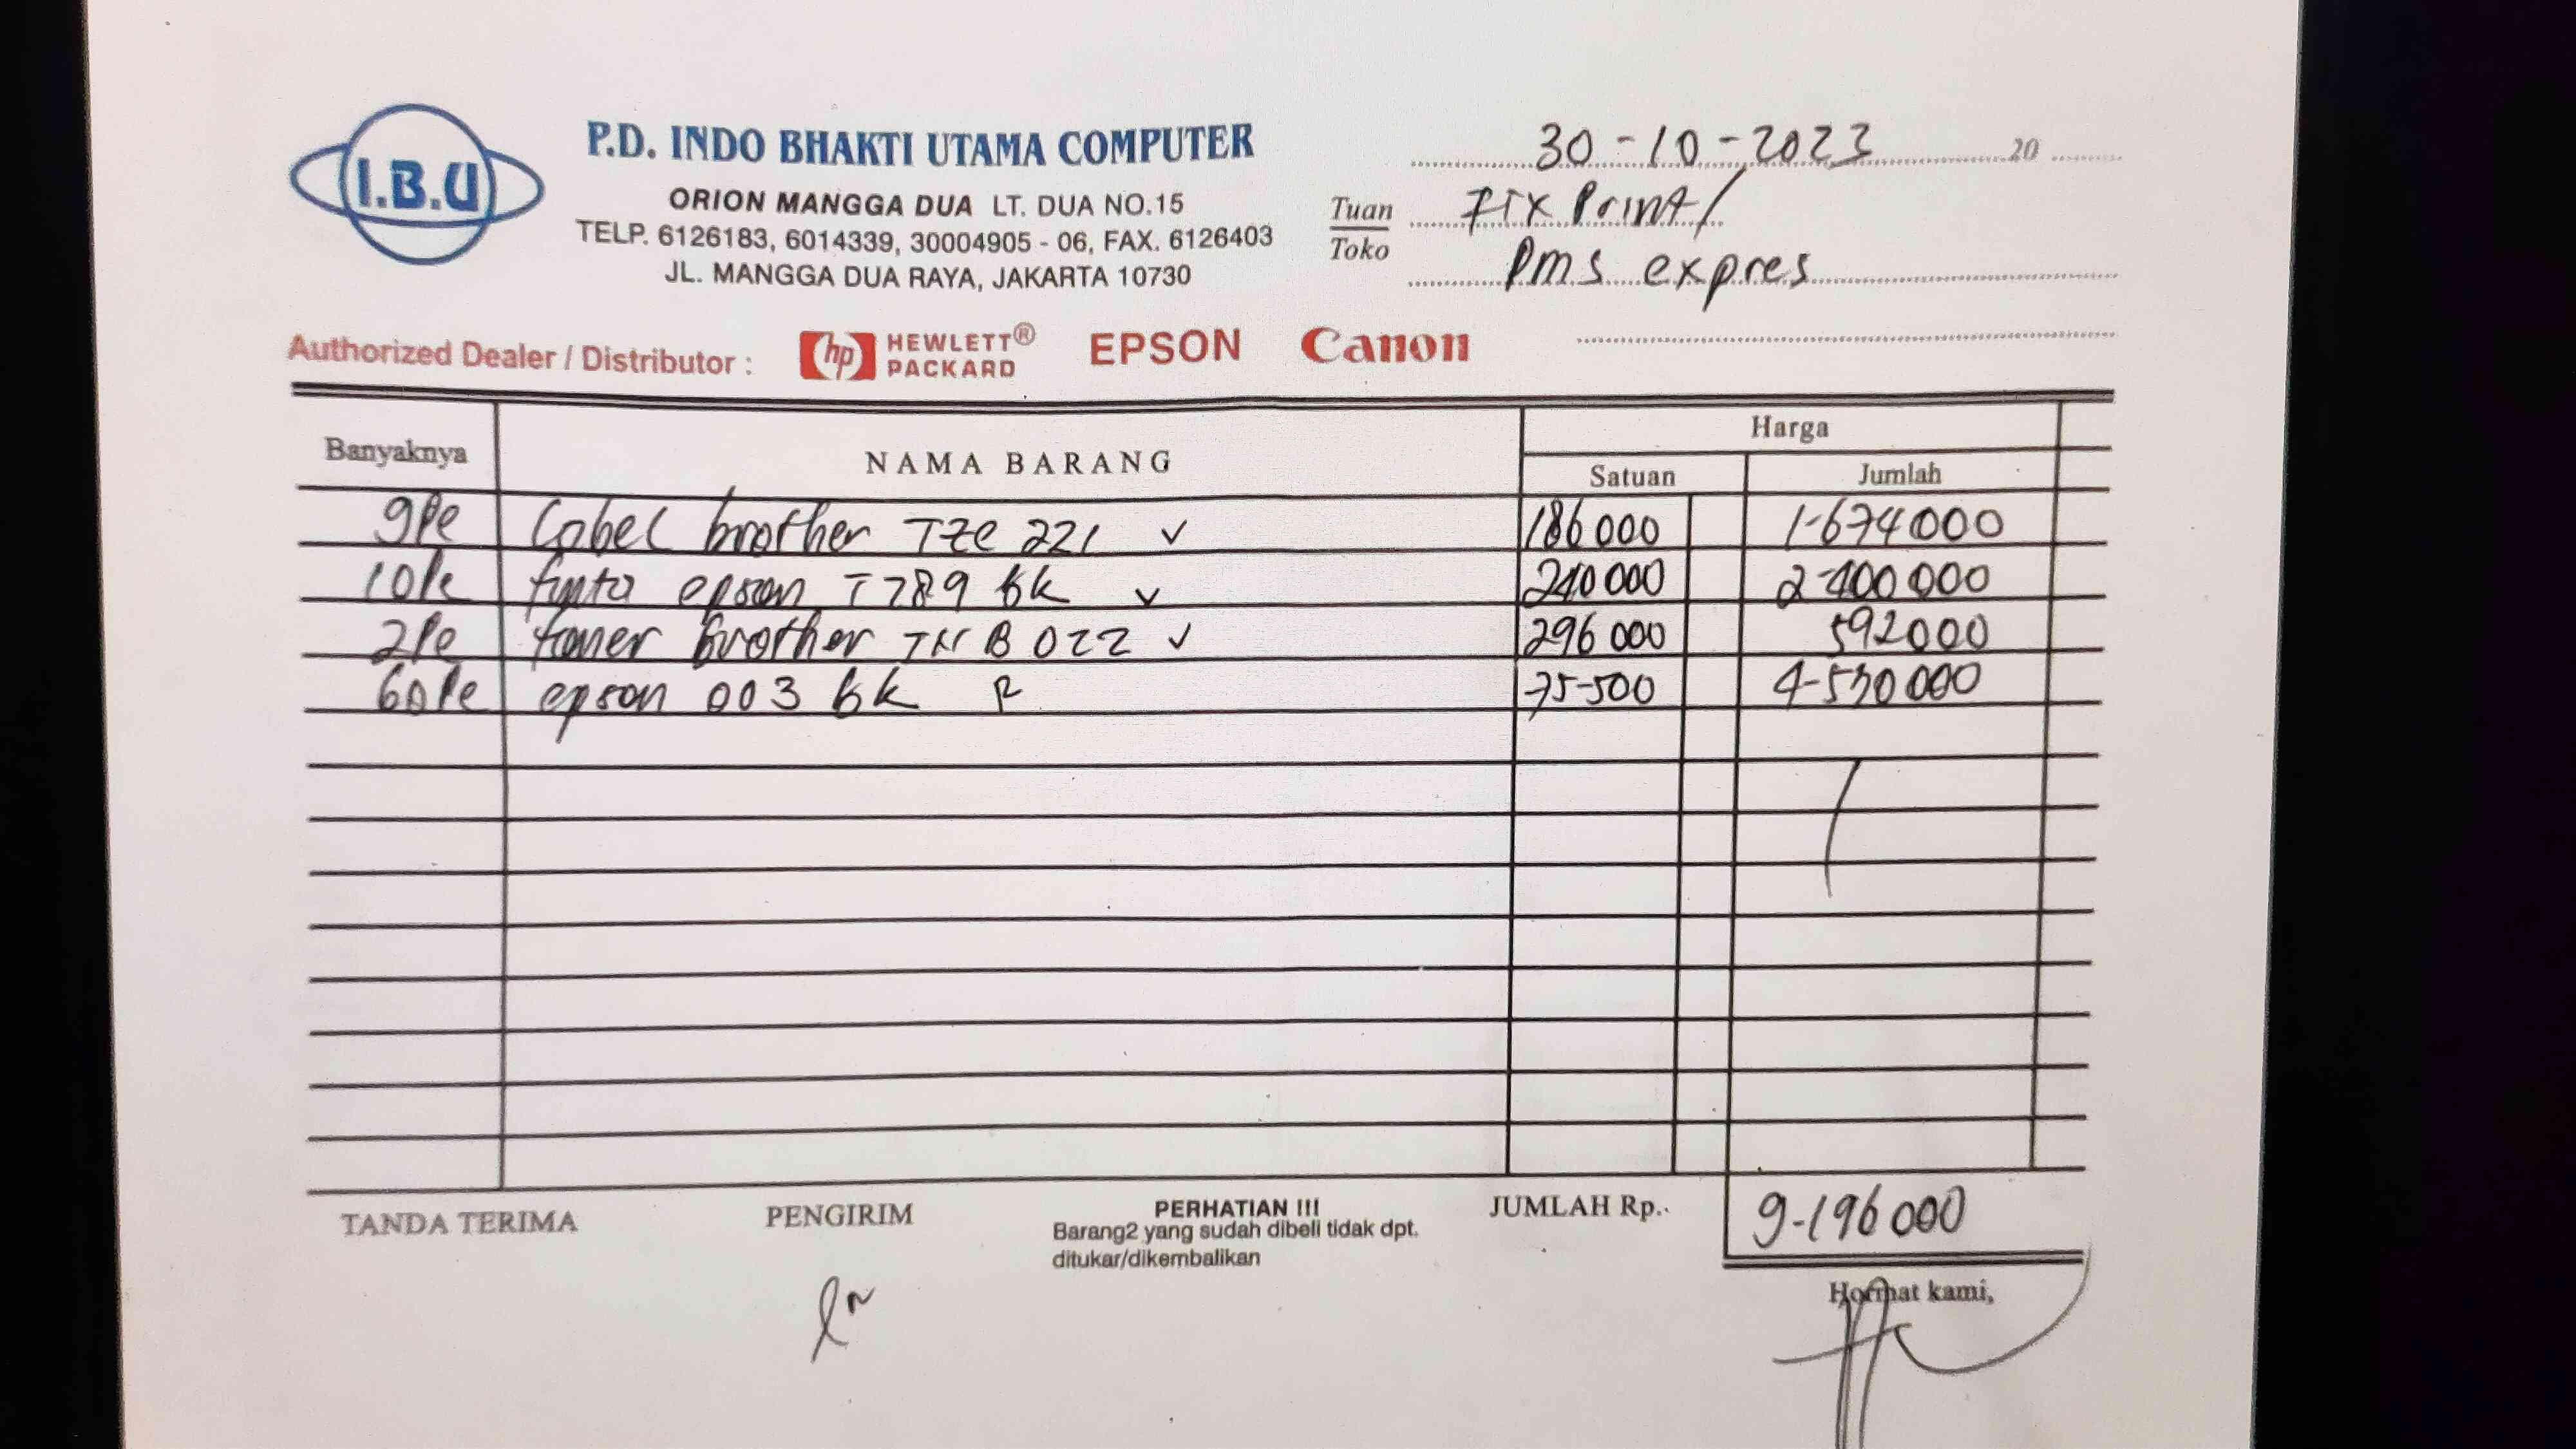 I.B.U
P.D. INDO BHAKTI UTAMA COMPUTER
ORION MANGGA DUA LT. DUA NO.15
TELP. 6126183, 6014339, 30004905 - 06, FAX. 6126403
JL. MANGGA DUA RAYA, JAKARTA 10730
30-10-2023 20
Tuan Fix Print/
Toko Pms expres
Authorized Dealer / Distributor : hp HEWLETT® PACKARD EPSON Canon
Banyaknya NAMA BARANG Harga
Satuan Jumlah
9Pc Label brother TZe 221 ✓ 186000 1-674000
10Pc tinta epson T789 BK ✓ 240000 2-400000
2Pc toner brother TN B 022 ✓ 296000 592000
60Pc epson 003 BK 75-500 4-530000
TANDA TERIMA PENGIRIM PERHATIAN !!! JUMLAH Rp.. 9-196000
Barang2 yang sudah dibeli tidak dpt.
ditukar/dikembalikan
Hormat kami,